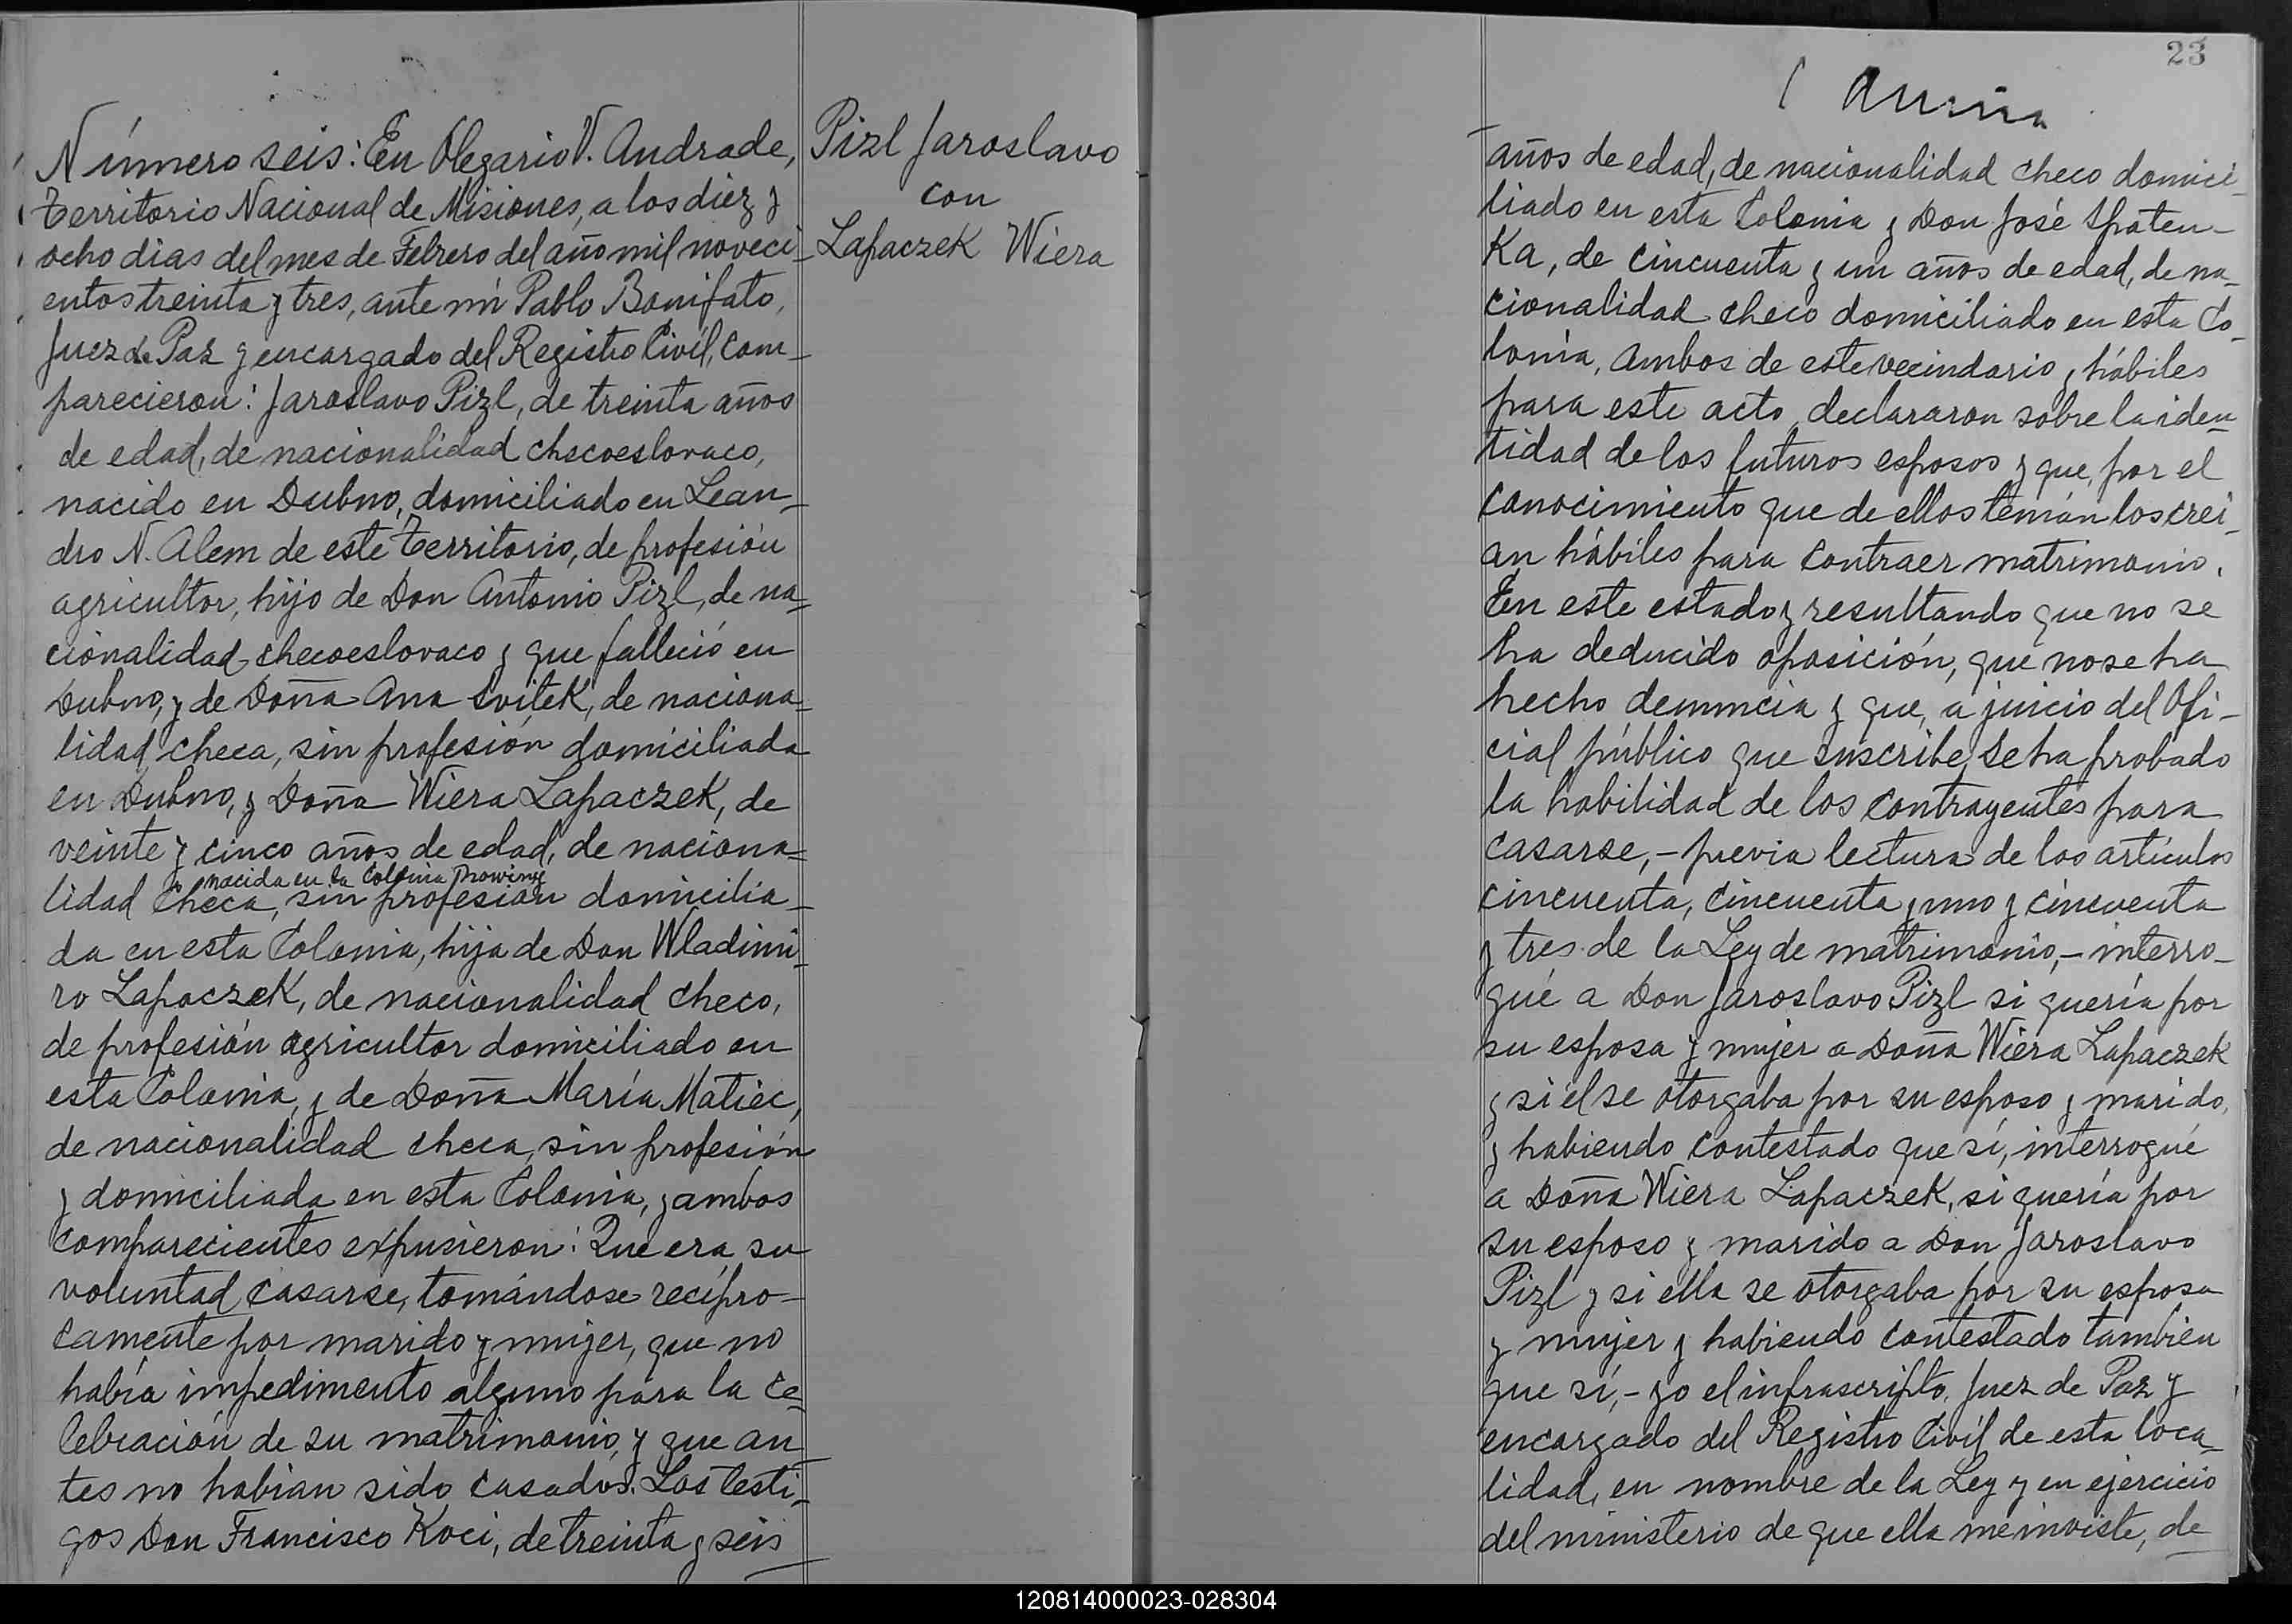 Número seis: En Olegario V. Andrade,
Territorio Nacional de Misiones, a los diez y
ocho dias del mes de Febrero del año mil noveci-
entos treinta y tres, ante mi Pablo Bonifato,
Juez de Paz y encargado del Registro Civil, com-
parecieron: Jaroslavo Pizl, de treinta años
de edad, de nacionalidad checoeslovaco,
nacido en Dubno, domiciliado en Lean-
dro N. Alem de este Territorio, de profesión
agricultor, hijo de Don Antonio Pizl, de na-
cionalidad checoeslovaco y que falleció en
Dubno, y de Doña Ana Svitek, de naciona-
lidad checa, sin profesión domiciliada
en Dubno, y Doña Wiera Lapaczek, de
veinte y cinco años de edad, de naciona-
nacida en la Colonia
lidad checa, sin profesión domicilia-
da en esta Colonia, hija de Don Wladimi-
ro Lapaczek, de nacionalidad checo,
de profesión agricultor domiciliado en
esta Colonia, y de Doña María Matiec,
de nacionalidad checa, sin profesión
y domiciliada en esta Colonia, y ambos
comparecientes expusieron: Que era su
voluntad casarse, tomándose recípro-
camente por marido y mujer, que no
había impedimento alguno para la ce-
lebración de su matrimonio, y que an-
tes no habian sido casados. Los testi-
gos Don Francisco Koci, de treinta y seis
Pizl Jaroslavo
con
Lapaczek Wiera
23
años de edad, de nacionalidad checo domici-
liado en esta Colonia y Don José Spaten-
ka, de cincuenta y un años de edad, de na-
cionalidad checo domiciliado en esta Co-
lonia, ambos de este vecindario y hábiles
para este acto, declararon sobre la iden-
tidad de los futuros esposos y que, por el
conocimiento que de ellos tenían los crei-
an hábiles para contraer matrimonio.
En este estado y resultando que no se
ha deducido oposición, que no se ha
hecho denuncia y que, a juicio del Ofi-
cial público que suscribe, se ha probado
la habilidad de los contrayentes para
casarse,- previa lectura de los artículos
cincuenta, cincuenta y uno y cincuenta
y tres de la Ley de matrimonio,- interro-
gué a Don Jaroslavo Pizl si quería por
su esposa y mujer a Doña Wiera Lapaczek
y si él se otorgaba por su esposo y marido,
y habiendo contestado que sí, interrogué
a Doña Wiera Lapaczek, si quería por
su esposo y marido a Don Jaroslavo
Pizl y si ella se otorgaba por su esposa
y mujer y habiendo contestado tambien
que sí,- yo el infrascripto, Juez de Paz y
encargado del Registro Civil de esta loca-
lidad, en nombre de la Ley y en ejercicio
del ministerio de que ella me inviste, de
120814000023-028304